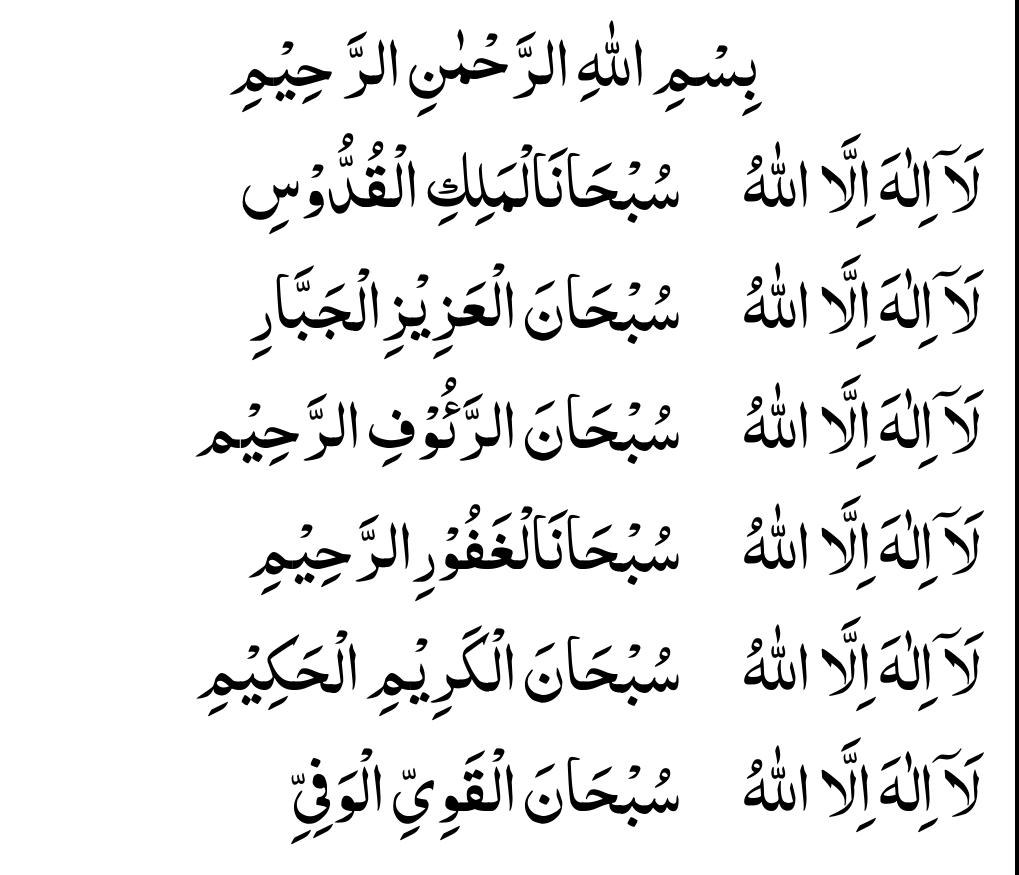 بِسْمِ اللّٰهِ الرَّحْمٰنِ الرَّحِيْمِ
لَآ اِلٰهَ اِلَّا اللّٰهُ سُبْحَانَالْمَلِكِ الْقُدُّوْسِ
لَآ اِلٰهَ اِلَّا اللّٰهُ سُبْحَانَ الْعَزِيْزِ الْجَبَّارِ
لَآ اِلٰهَ اِلَّا اللّٰهُ سُبْحَانَ الرَّئُوْفِ الرَّحِيْمِ
لَآ اِلٰهَ اِلَّا اللّٰهُ سُبْحَانَالْغَفُوْرِ الرَّحِيْمِ
لَآ اِلٰهَ اِلَّا اللّٰهُ سُبْحَانَ الْكَرِيْمِ الْحَكِيْمِ
لَآ اِلٰهَ اِلَّا اللّٰهُ سُبْحَانَ الْقَوِيِّ الْوَفِيِّ